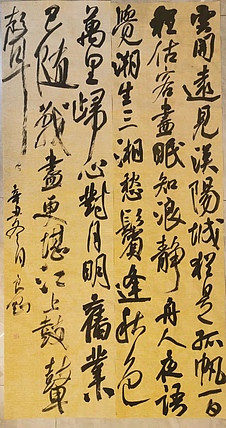 雲開遠見漢陽城猶是孤帆一日
程估客晝眠知浪靜舟人夜語
覺潮生三湘愁鬢逢秋色
萬里歸心對月明舊業
已随戰盡更堪江上鼓鼙
聲
辛丑冬月